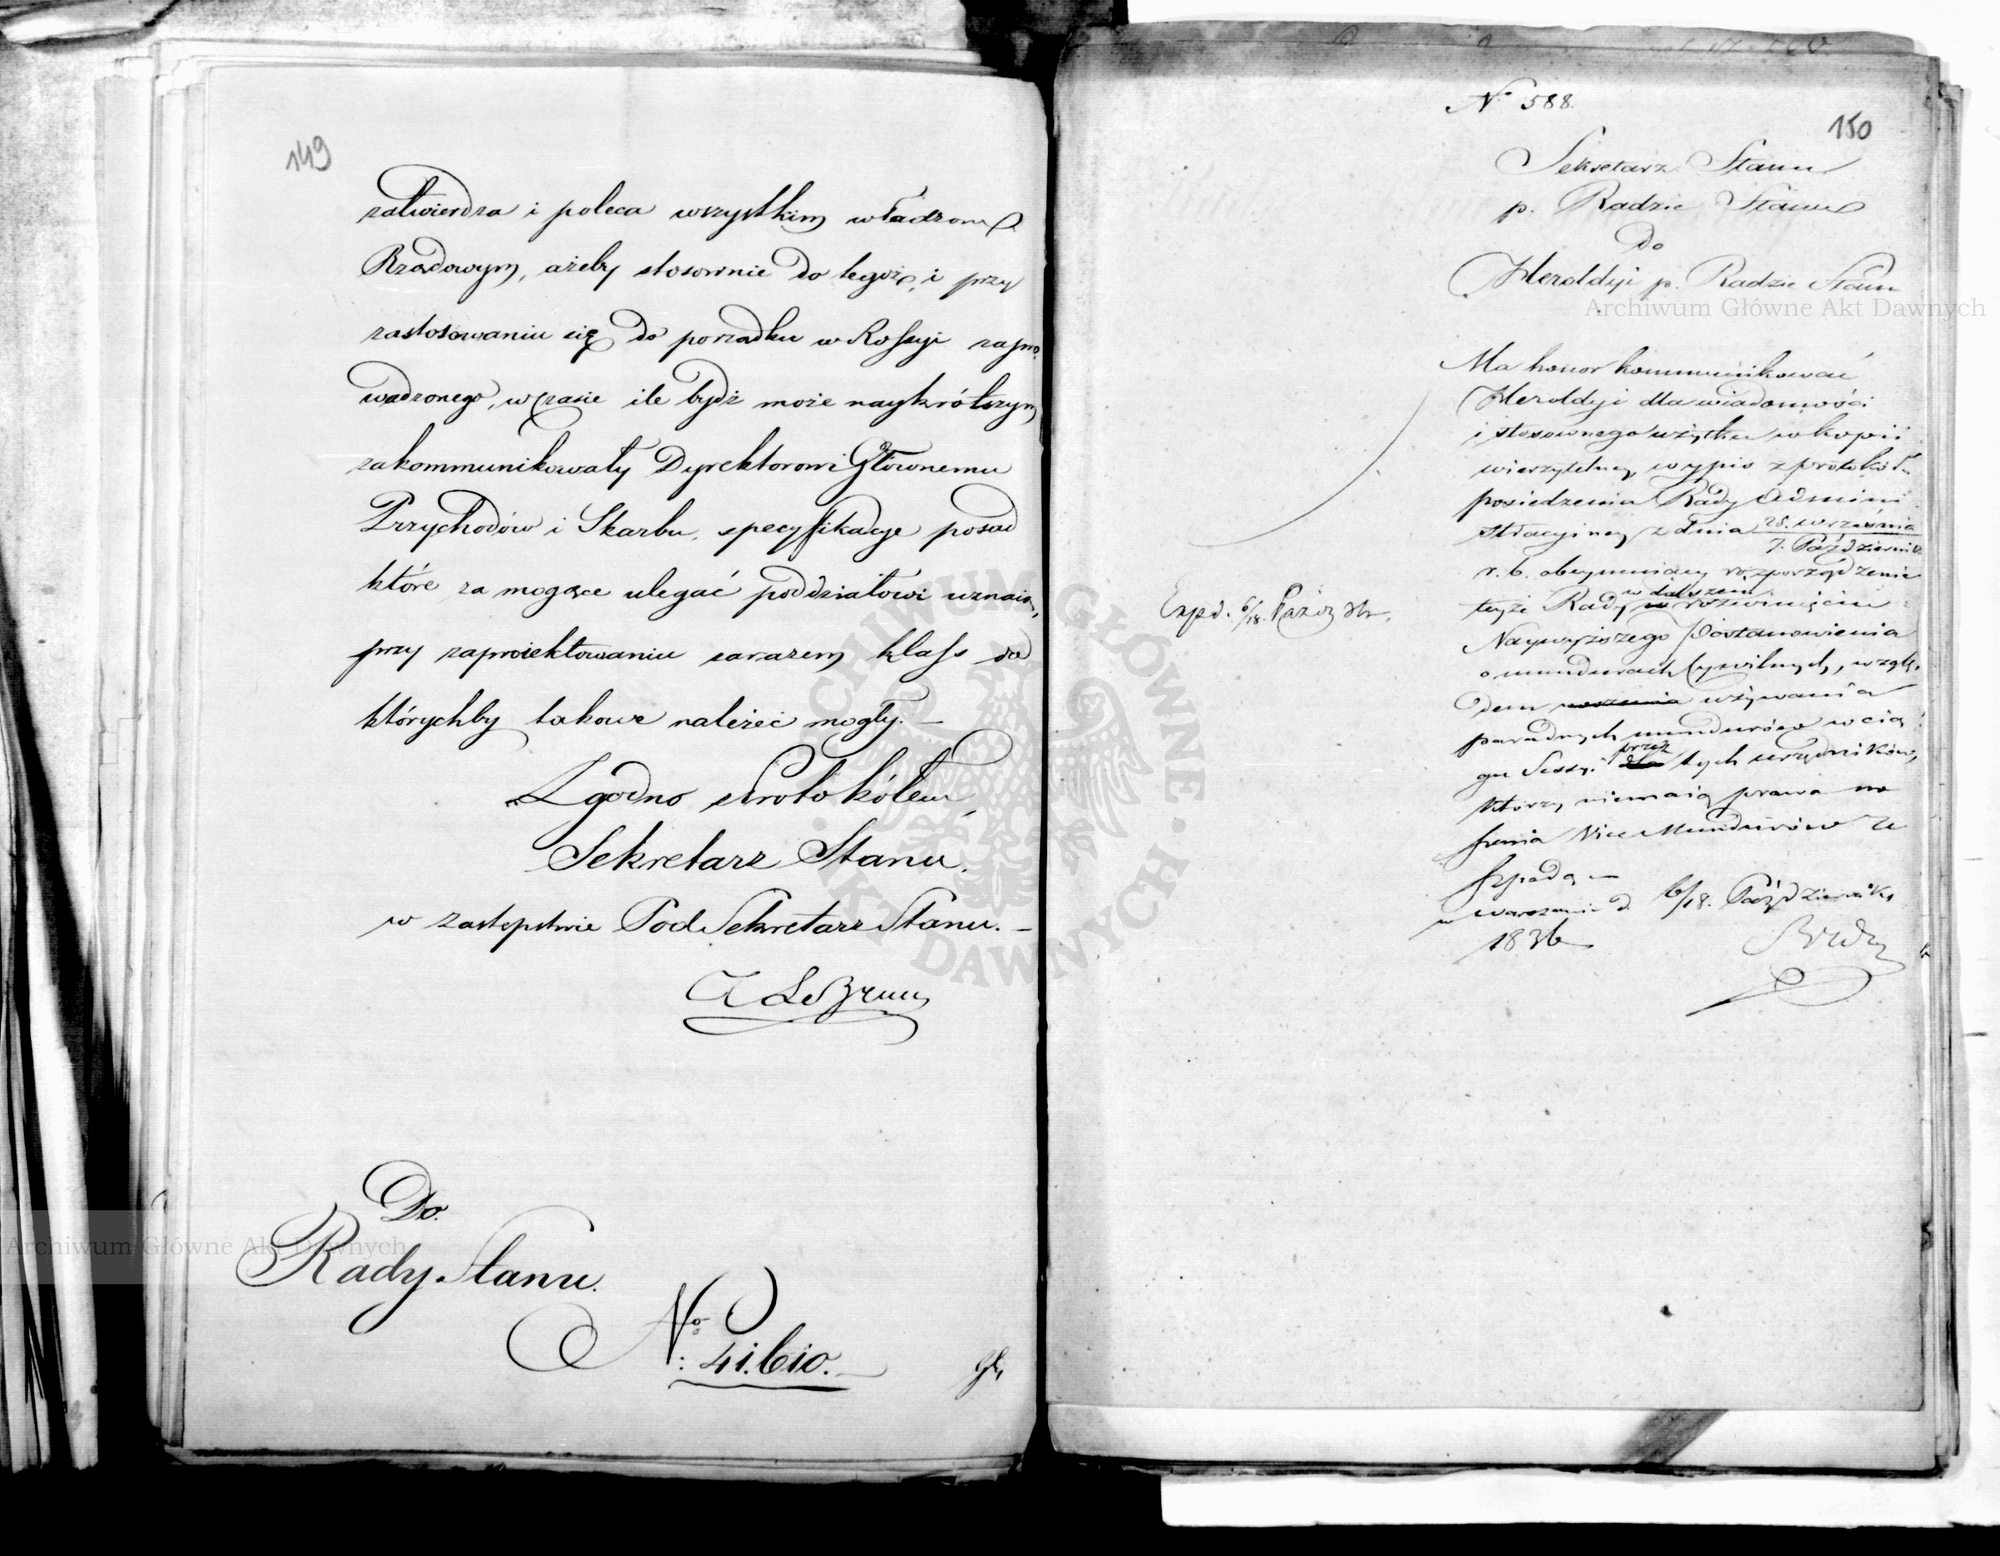 149
zatwierdza i poleca wszystkim władzom
Rządowym, ażeby stosownie do tegoż, i przy
zastosowaniu się do porządku w Rossyi zapro-
wadzonego, w czasie ile bydź może naykrótszym
zakommunikowały Dyrektorowi Głównemu
Przychodów i Skarbu, specyfikacye posad
które za mogące ulegać poddziałowi uznaią,
przy zaproiektowaniu zarazem klass do
którychby takowe należeć mogły. —
Zgodno z Protokółem,
Sekretarz Stanu.
w zastępstwie Pod Sekretarz Stanu. —
A LeBrun
Do
Rady Stanu.
No: 41.610. —
No 588.
150
Sekretarz Stanu
p. Radzie Stanu
Do
Heroldyi p. Radzie Stanu
Ma honor kommunikować
Heroldyi dla wiadomości
i stosownego użytku w kopii
wierzytelney wypis z protokółu
posiedzenia Rady Admini
stracyiney z dnia 25. września
7. Październik
r. b. obeymuiący rozporządzenie
teyże Rady w dalszem rozwinięciu
Naywyższego Postanowienia
o mundurach Cywilnych, wzglę-
dem noszenia używania
paradnych mundurów w cią
gu Sessyi dla przez tych urzędników,
którzy niemaią prawa no
szenia Vice Mundurów ze
szpadą —
w Warszawie d. 6/18. Października
1836
Expd. 6/18. Paźdz 36.
Archiwum Główne Akt Dawnych
Archiwum Główne Akt Dawnych
ARCHIWUM GŁÓWNE · AKT DAWNYCH ·